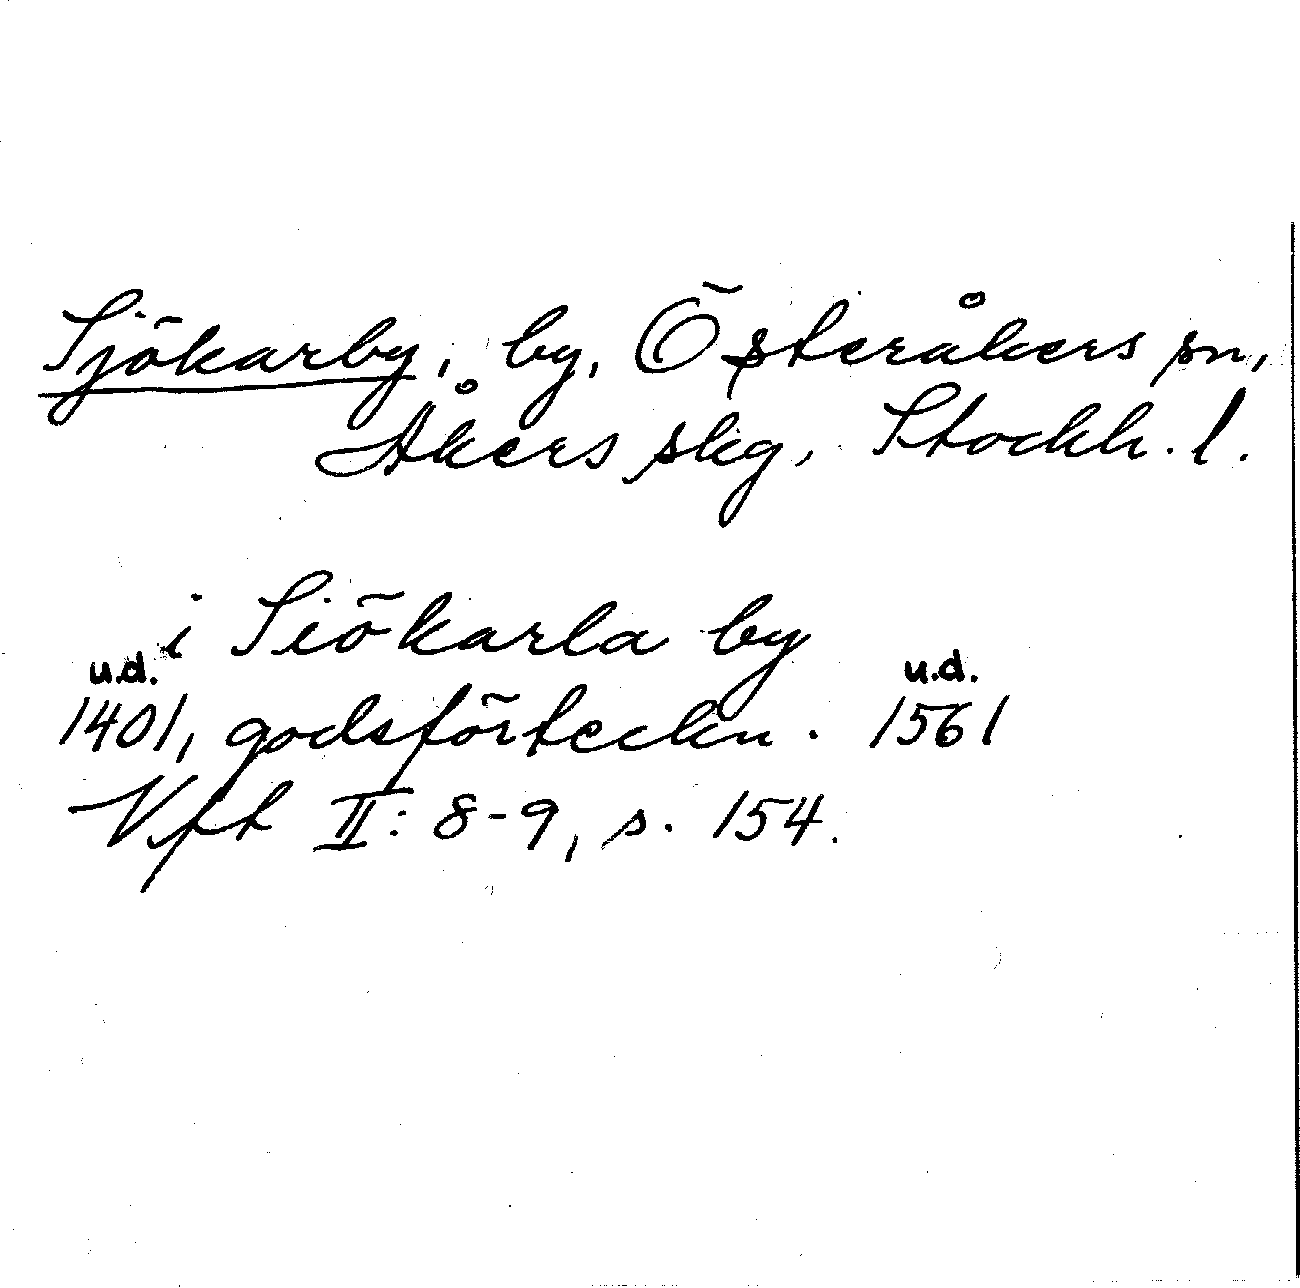 Sjökarby, by, Österåkers sn,
Åkers skg, Stockh. l.
i Siökarla by
u.d. u.d.
1401, godsförteckn. 1561
Vft II: 8-9, s. 154.